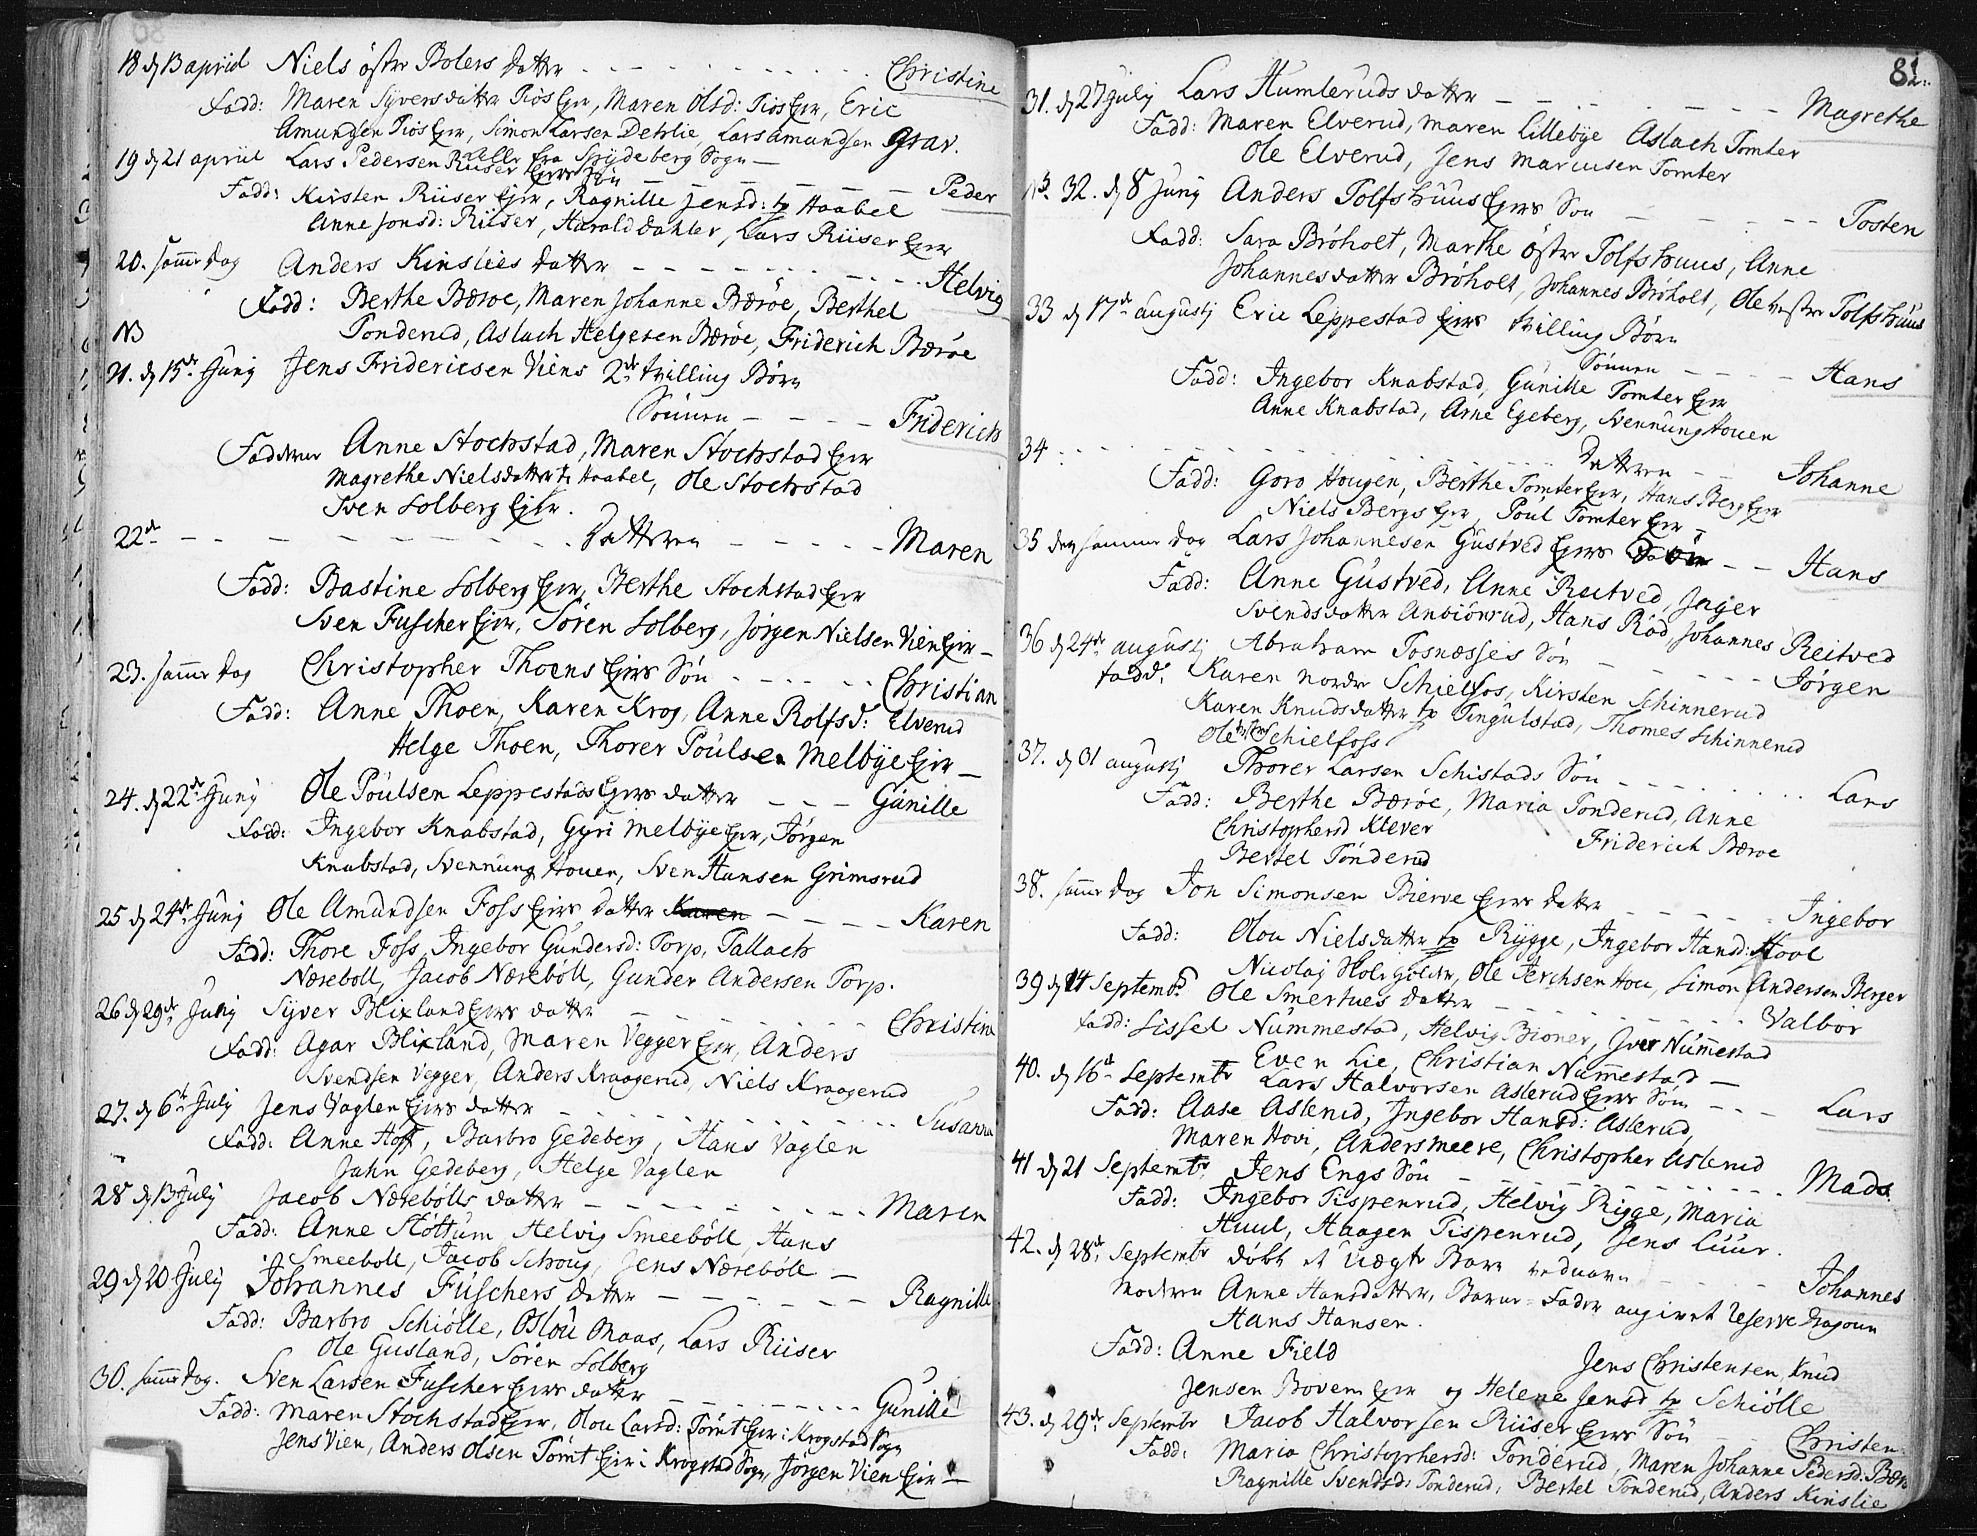 18 d 13 april Niels östre Bolers datter - - - Christine
Fadd: Maren Syversdatter Tiös Ejer, Maren Olsd: Tiös Ejer, Eric
Amundsen Tiös Ejer, Simon Larsen Dehlie, Lars Amundsen Grav.
19 d 21 april Lars Pedersen Riiser eller fra Spydeberg Sogn -
Ejers Søn - - - Peder
Fadd: Kirsten Riiser Ejer, Ragnille Jensd: tp Haabel
Anne Jonsd: Riiser, Harald Dahler, Lars Riiser Ejer
20. samme dag Anders Kinslies datter - - - Helvig
Fadd: Berthe Bæroe, Maren Johanne Bæröe, Berthel
NB Tonderud, Aslach Helgesen Bæröe, Friderich Bæröe
21. d 15de Junij Jens Fridericsen Viens 2de tvilling Børn
Sönnen - - - Friderich
Faddere Anne Stochstad, Maren Stochstad Ejer
Magrethe Nielsdatter tp Haabel, Ole Stochstad
Sven Solberg Ejer.
22de - - - Datteren - - - Maren
Fadd: Bastine Solberg Ejer, Berthe Stochstad Ejer
Sven Fuscher Ejer, Sören Solberg, Jörgen Nielsen Vien Ejer -
23. samme dag Christopher Thoens Ejers Sön - - - Christian
Fadd: Anne Thoen, Karen Krog, Anne Rolfsd: Elverud
Helge Thoen, Thorer Poulsen Melbye Ejer -
24. d 22de Junij Ole Poulsen Leppestads Ejers datter - - - Gunille
Fadd: Ingebor Knabstad, Gyri Melbye Ejer, Jörgen
Knabstad, Svennung Houen, Sven Hansen Grimsrud
25 d 24de Junij Ole Amundsen Foss Ejers datter Karen - - - Karen
Fadd: Thore Foss, Ingebor Gundersd: Torp, Tallach
Næreboll, Jacob Næreböll, Gunder Andersen Torp.
26 d 29de Junij Syver Blixland Ejers datter - - - Christine
Fadd: Agar Blixland, Maren Vegger Ejer, Anders
Svendsen Vegger, Anders Kraagerud, Niels Kraagerud
27. d 6te July Jens Vaglen Ejers datter - - - Susanna
Fadd: Anne Hoff, Barbro Gedeberg, Hans Vaglen
Jahn Gedeberg, Helge Vaglen
28 d 13 Julij Jacob Nærebölls datter - - - Maren
Fadd: Anne Stöttum, Helvig Smeeböll, Hans
Smeeboll, Jacob Schoug, Jens Næreböll -
29 d 20 Julij Johannes Fuschers datter - - - Ragnille
Fadd: Barbro Schiölle, Olou Maas, Lars Riiser
Ole Gusland, Sören Solberg
30. samme dag. Sven Larsen Fuscher Ejers datter - - - Gunille
Fadd: Maren Stochstad Ejer, Olou Larsd: Tömt Ejer i Krogstad Sogn
Jens Vien, Anders Olsen Tömt Ejer i Krogstad Sogn, Jörgen Vien Ejer -
81.
31. d 27 julij Lars Humleruds datter - - - Magrethe
Fadd: Maren Elverud, Maren Lillebye Aslach Tomter
Ole Elverud, Jens Marcusen Tomter
NB. 32. d 8 Junij Anders Tolfshuus Ejers Søn - - - Tosten
Fadd: Sara Bröholt, Marthe östre Tolfshuus, Anne
Johannesdatter Bröholt, Johannes Bröholt, Ole vestre Tolfshuus
33 d 17de augustj Eric Leppestad Ejers tvilling Børn
Sönnen - - - Hans
Fadd: Ingebor Knabstad, Gunille Tomter Ejer
Anne Knabstad, Arne Egeberg, Svennung Houen
34 - - - Datteren - - - Johanne
Fadd: Goro Hougen, Berthe Tomter Ejer, Hans Berg Ejer
Niels Bergs Ejer, Poul Tomter Ejer -
35 den samme dag Lars Johannesen Gustved Ejers Sön - - Hans
Fadd: Anne Gustved, Anne Reitved, Inger
Svendsdatter Anbiönrud, Hans Röd, Johannes Reitved
36 d 24de augustj Abraham Tosnæsses Sön - - - Jörgen
Fadd: Karen nordre Schielfos, Kirsten Schinnerud
Karen Knudsdatter tp Tingulstad, Thomes Schinnerud
Ole östre Schielfoss
37. d 31 augustj Thorer Larsen Schistads Sön - - - Lars
Fadd: Berthe Bæröe, Maria Tonderud, Anne
Christophersd Klever Friderich Bæroe
Bertel Tönderud
38. samme dag Jon Simonsen Bierve Ejers datter - - - Ingebor
Fadd: Olou Nielsdatter tp Rygge, Ingebor Hansd: Hoel
Nicolaj Holsgolder, Ole Jerchsen Hou, Simon Andersen Berger
39 d 14 Septembr Ole Smertues datter - - - Valbor
Fadd: Sissel Nummestad, Helvig Bioner, Iver Nummestad
Even Lie, Christian Nummestad -
40. d 16de Septembr Lars Halvorsen Aslerud Ejers Sön - - - Lars
Fadd: Aase Aslerud, Ingebor Hansd: Aslerud,
Maren Hovi, Anders Meere, Christopher Aslerud
41 d 21 Septembr Jens Engs Sön - - - Mads
Fadd: Ingebor Tispenrud, Helvig Rigge, Maria
Huul, Haagen Tispenrud, Jens Luur.
42. d 28de Septembr döbt et Uægte Barn ved navn - - - Johannes
Moderen Anne Hansdatter, Barne-Fader angivet Reserve Dragoun
Hans Hansen.
Fadd: Anne Field Jens Christensen, Knud
Jensen Bovem Ejer og Helene Jensd tp Schiölle
43. d 29de Septembr Jacob Halvorsen Riiser Ejers Sön - - Christen
Fadd: Maria Christophersd: Tonderud, Maren Johanne Pedersd: Bær
Ragnille Svendsd: Tonderud, Bertel Tonderud, Anders Kinslie